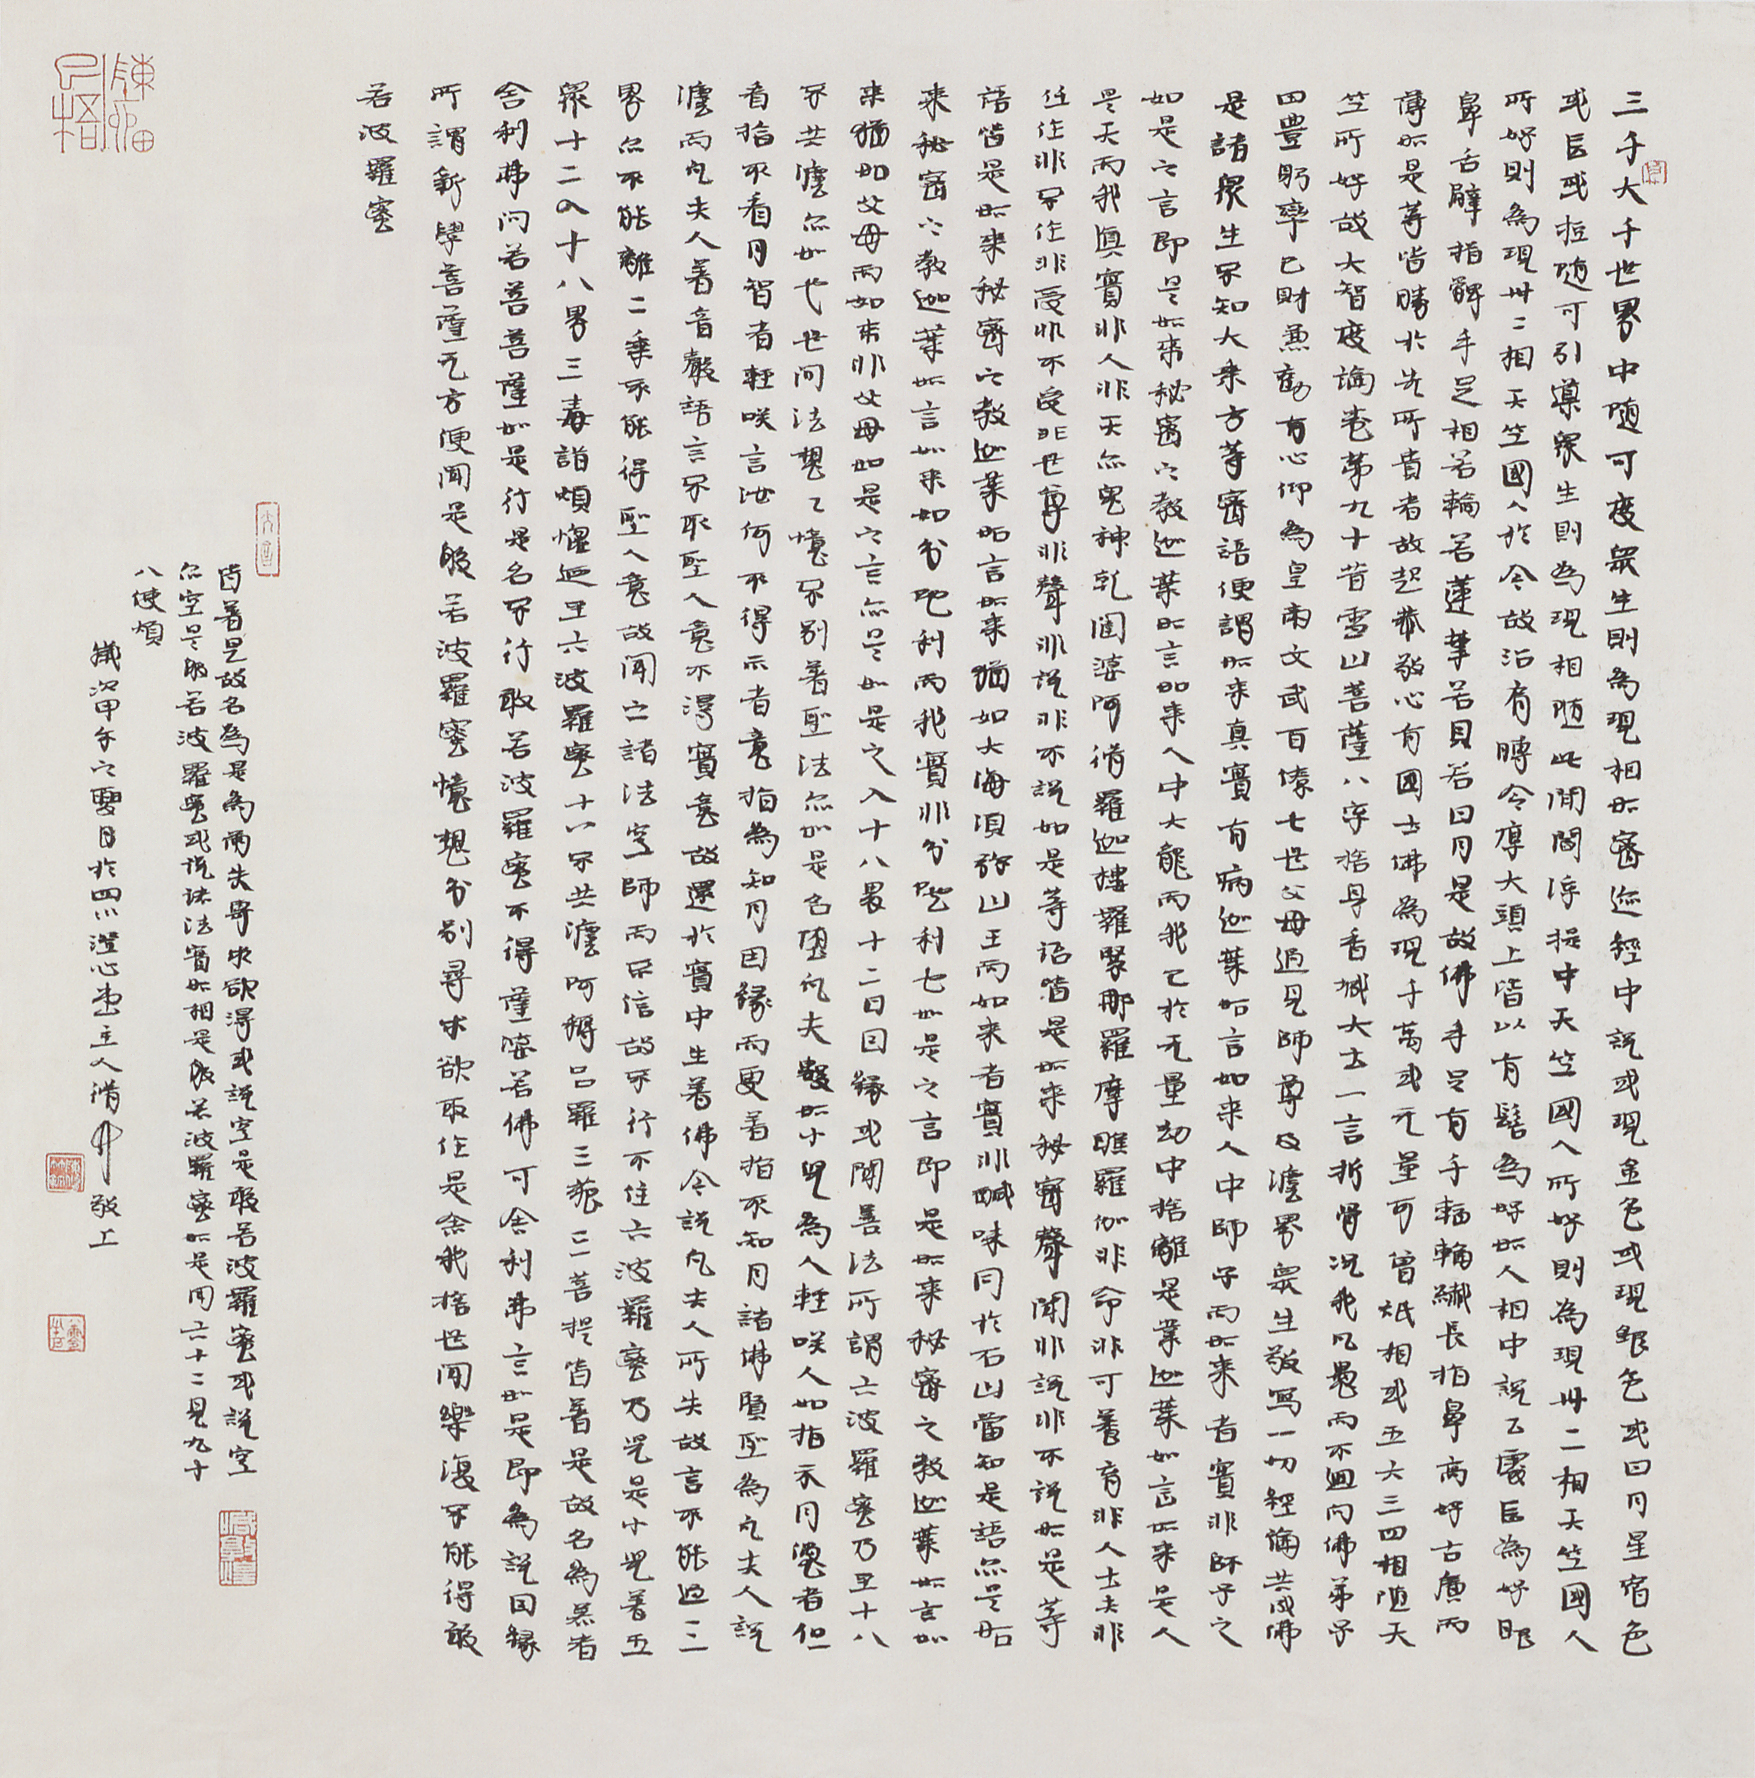 三千大千世界中隨可度眾生則為現相如密迹經中說或現金色或現銀色或日月星宿色
或長或短隨可引導眾生則為現相隨此間閻浮提中天竺國人所好則為現卅二相天竺國人
所好則為現卅二相天竺國人於今故治肩髆令厚大頭上皆以有髻為好如人相中說五處長為好眼
鼻舌臂指髀手足相若輪若蓮華若貝若日月是故佛手足有千輻輪纖長指鼻高好舌廣而
薄如是等皆勝於先所貴者故起恭敬心有國土佛為現千萬或无量阿僧祇相或五六三四相隨天
竺所好故大智度論卷第九十昔雪山菩薩八字捨身香城大士一言析骨況我凡愚而不迴向佛弟子
田豐躬率己財兼勸有心仰為皇帝文武百僚七世父母過見師尊及法界眾生敬寫一切經論共成佛
是諸眾生不知大乘方等密語便謂如來真實有病迦葉如言如來人中師子而如來者實非師子
如是之言即是如來秘密之教迦葉如言如來人中大龍而我已於无量劫中捨離是業迦葉如言如來是人
是天而我真實非人非天亦鬼神乾闥婆阿修羅迦樓羅緊那羅摩睺羅伽非命非可養育非人士夫非
作非不作非受非不受非世尊非聲非說非不說如是等語皆是如來秘密聲聞非說非不說如是等
語皆是如來秘密之教迦葉如言如來猶如大海須彌山王而如來者實非醎味同於石山當知是語亦是如
來秘密之教迦葉如言如來如分陀利而我實非分陀利也如是之言即是如來秘密之教迦葉如言如
來猶如父母而如來非父母如是之言亦是如是之入十八界十二因緣或聞善法所謂六波羅蜜乃至十八
不共法亦如世世間法想憶分別著聖法亦如是名墮凡夫數如小兒為人輕咲人如指示月愚者但
看指不看月智者輕咲言汝何不得示者意指為知月因緣而更著指不知月諸佛賢聖為凡夫人說
法而凡夫人著音聲語言不取聖人意不得實意故還於實中生著佛今說凡夫人所失故言不能過三
界亦不能離二乘不能得聖人意故聞之諸法空師而不信故不行不住六波羅蜜乃是小兒著五
眾十二入十八界三毒諸煩惱迴至六波羅蜜十八不共法阿耨三羅三藐三菩提皆著是故名為著者
舍利弗問若菩薩如是行是名不行般若波羅蜜不得薩婆若佛可舍利弗言如是即為說因緣
所謂新學菩薩无方便聞是般若波羅蜜憶想分別尋求欲取作是念我捨世間樂復不能得般
若波羅蜜
皆著是故名為是為兩失尋求欲得或說空是般若波羅蜜或說空
亦空是般若波羅蜜或說諸法實如相是般若波羅蜜如是用六十二見九十
八使煩
歲次甲午之嬰月於四川澄心堂主人